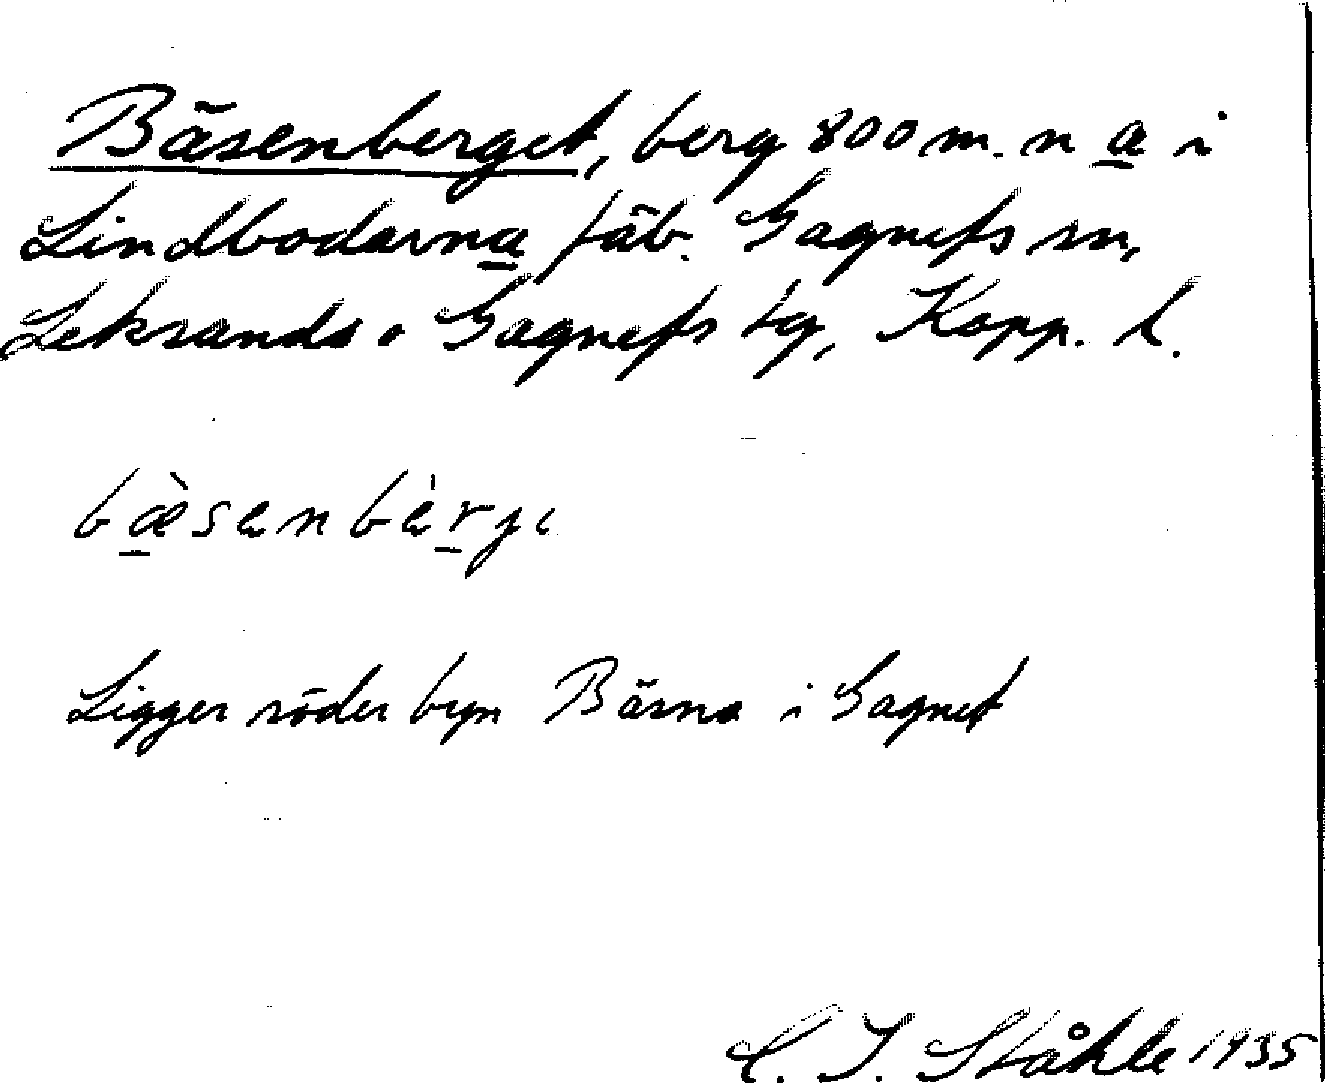 Bäsenberget, berg 800 m. n a i
Lindbodarna fäb. Gagnefs sn,
Leksands o Gagnefs tg, Kopp. l.
bæ̀senbèrjı
Ligger söder byn Bäsna i Gagnef
C. I. Ståhle 1935